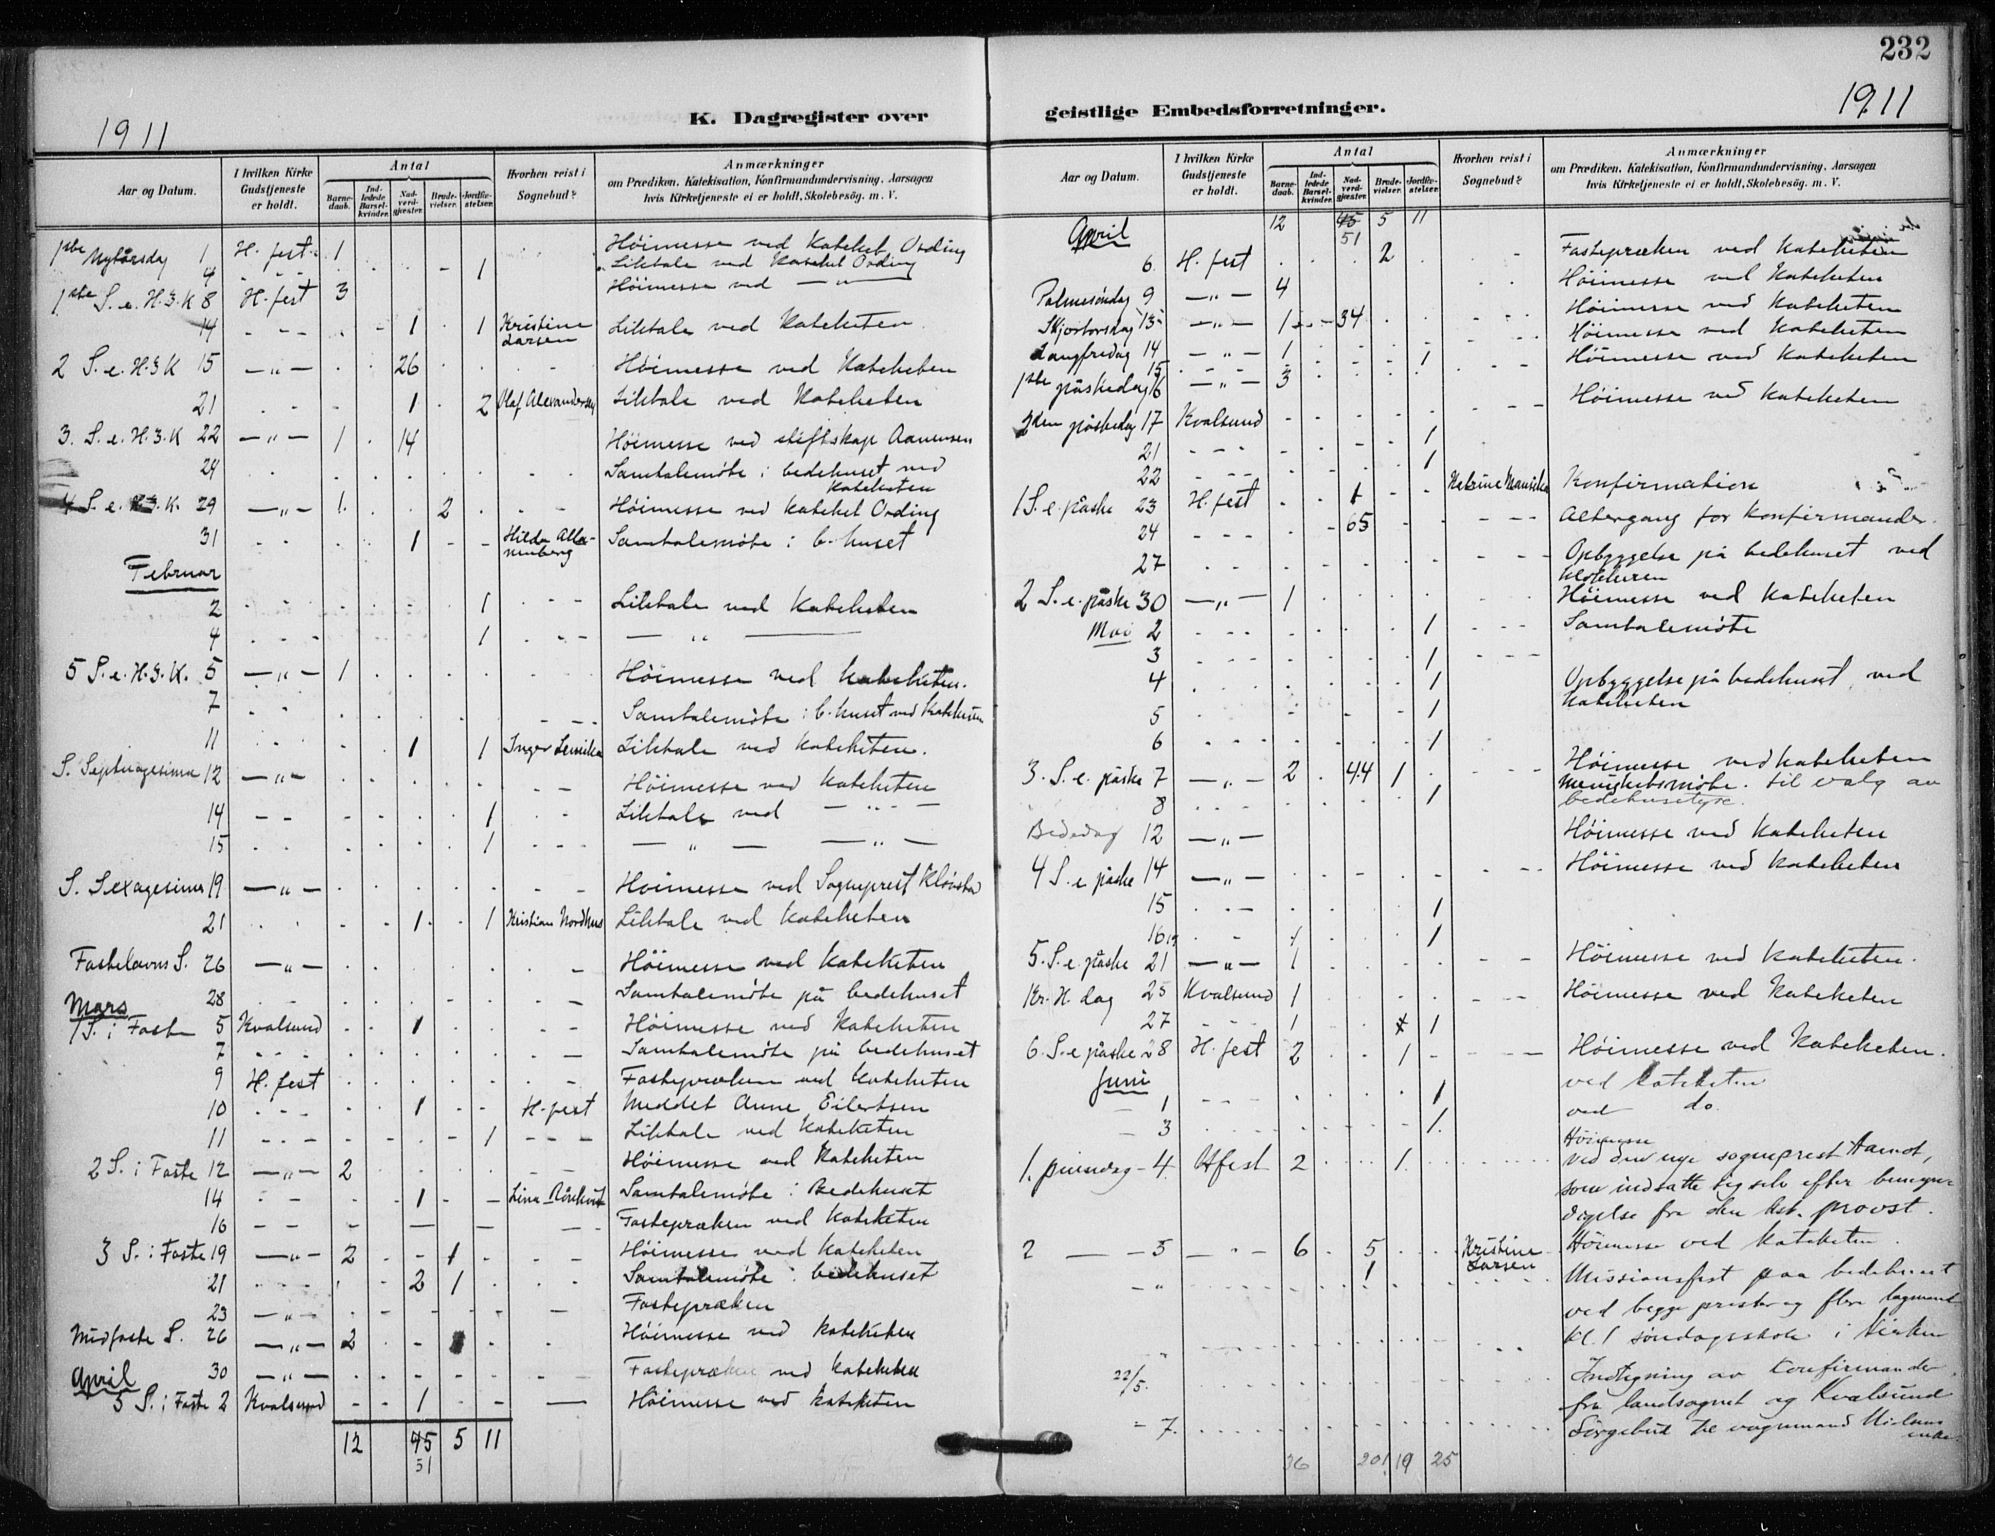 232
1911
1911
K. Dagregister over
geistlige Embedsforretninger.
Aar og Datum.
I hvilken Kirke Gudstjeneste er holdt.
Antal
Barnedaab.
Indledede Barselkvinder.
Nadverdgjæster.
Brudevielser.
Jordfæstelser.
Hvorhen reist i Sognebud?
Anmærkninger
om Prædiken, Katekisation, Konfirmandundervisning, Aarsagen
hvis Kirketjeneste ei er holdt, Skolebesøg. m. V.
1ste Nytårsdag 1 H. fest 1 Høimesse ved Katekek Ording
4 1 Liktale ved Katekek Ording
1ste S. e. H.3.K 8 H. fest 3 Høimesse ved — " —
14 1 1 Kristine Larsen Liktale ved Kateketen
2 S. e. H.3.K 15 — " — 26 Høimesse ved Kateketen
21 1 2 Olaf Alexandersen Liktale ved Kateketen
3. S. e. H.3.K 22 — " — 1 14 Høimesse ved stiftskap Aanensen
24 Samtalemøte i bedehuset ved Kateketen
4 S. e. H.3.K. 29 — " — 1 2 Høimesse ved Katekek Ording
31 1 Hilda Samtalemøte i b.huset
Februar
2 1 Liktale ved Kateketen
4 1 — " —
5 S. e. H.3.K. 5 — " — 1 Høimesse ved Kateketen.
7 Samtalemøte i b.huset ved Kateketen
11 1 1 Inger Liktale ved Kateketen.
S. Septuagesima 12 — " — Høimesse ved Kateketen
14 1 Liktale ved — " —
15 1 — " — — " —
S. Sexagesima 19 — " — Høimesse ved Sogneprest
21 1 1 Kristian Nordhus Liktale ved Kateketen
Fastelavns S. 26 — " — Høimesse ved Kateketen
28 Samtalemøte på bedehuset
Mars
1 S. i Faste 5 Kvalsund 1 Høimesse ved Kateketen
7 Samtalemøte på bedehuset
9 H. fest Fastepræken ved Kateketen
10 1 H. fest Meddet Anne Eilertsen
11 1 Liktale ved Kateketen
2 S. i Faste 12 — " — 2 Høimesse ved Kateketen
14 1 Lina Samtalemøte i Bedehuset
16 Fastepræken ved Kateketen
3 S. i Faste 19 — " — 2 1 Høimesse ved Kateketen
21 2 1 Samtalemøte i bedehuset
23 — " — Fastepræken
Midfaste S. 26 — " — 2 Høimesse ved Kateketen
30 — " — Fastepræken ved Kateketen
April
5 S. i Faste 2 Kvalsund 1 Høimesse ved Kateketen
12 45 5 11
51
Aar og Datum.
I hvilken Kirke Gudstjeneste er holdt.
Antal
Barnedaab.
Indledede Barselkvinder.
Nadverdgjæster.
Brudevielser.
Jordfæstelser.
Hvorhen reist i Sognebud?
Anmærkninger
om Prædiken, Katekisation, Konfirmandundervisning, Aarsagen
hvis Kirketjeneste ei er holdt, Skolebesøg. m. V.
12 45 5 11
51
April
6 H. fest 2 Fastepræken ved Kateketen
Palmesøndag 9 — " — 4 Høimesse ved Kateketen
Skjærtorsdag 13 — " — 1 34 Høimesse ved Kateketen
Langfredag 14 — " — 1 Høimesse ved Kateketen
15 1
1ste påskedag 16 — " — 3 Høimesse ved Kateketen
2den påskedag 17 Kvalsund Høimesse ved Kateketen
21 1
22 1
1 S. e. påske 23 H. fest 1 Konfirmation
24 65 Altergang for konfirmander.
27 Opbyggelse på bedehuset ved klokkeren
2 S. e. påske 30 — " — 1 Høimesse ved Kateketen
Mai 2 1 Samtalemøte
3 1
4 1 Opbyggelse på bedehuset ved Kateketen
5 1
6 1
3. S. e. påske 7 — " — 2 44 1 Høimesse ved Kateketen
8 1 Menighetsmøte til valg av
bedehusstyre.
Bededag 12 — " — Høimesse ved Kateketen
4 S. e. påske 14 — " — Høimesse ved Kateketen
15 1
16 1 1
5. S. e. påske 21 — " — 1 Høimesse ved Kateketen.
Kr. H. dag 25 Kvalsund 1 Høimesse ved Kateketen
27 1 1
6. S. e påske 28 H. fest 2 1 Høimesse ved Kateketen.
Juni
1 1 ved Kateketen
3 1 ved do.
1. pinsedag 4. H fest 2 1 Høimesse
ved den nye sogneprest
som indsatte sig selv efter bemyn-
digelse fra den kst. provst.
2 — 5 — " — 6 5 Kristine Larsen Høimesse ved Kateketen.
— " 1 Missionsfest paa bedehuset
ved begge prester og flere lægmænd
" Kl. 1 søndagsskole i kirken
22/5. Indtegning av konfirmander
fra landsognet og Kvalsund
— 7. Sørgebud
36 201 19 25